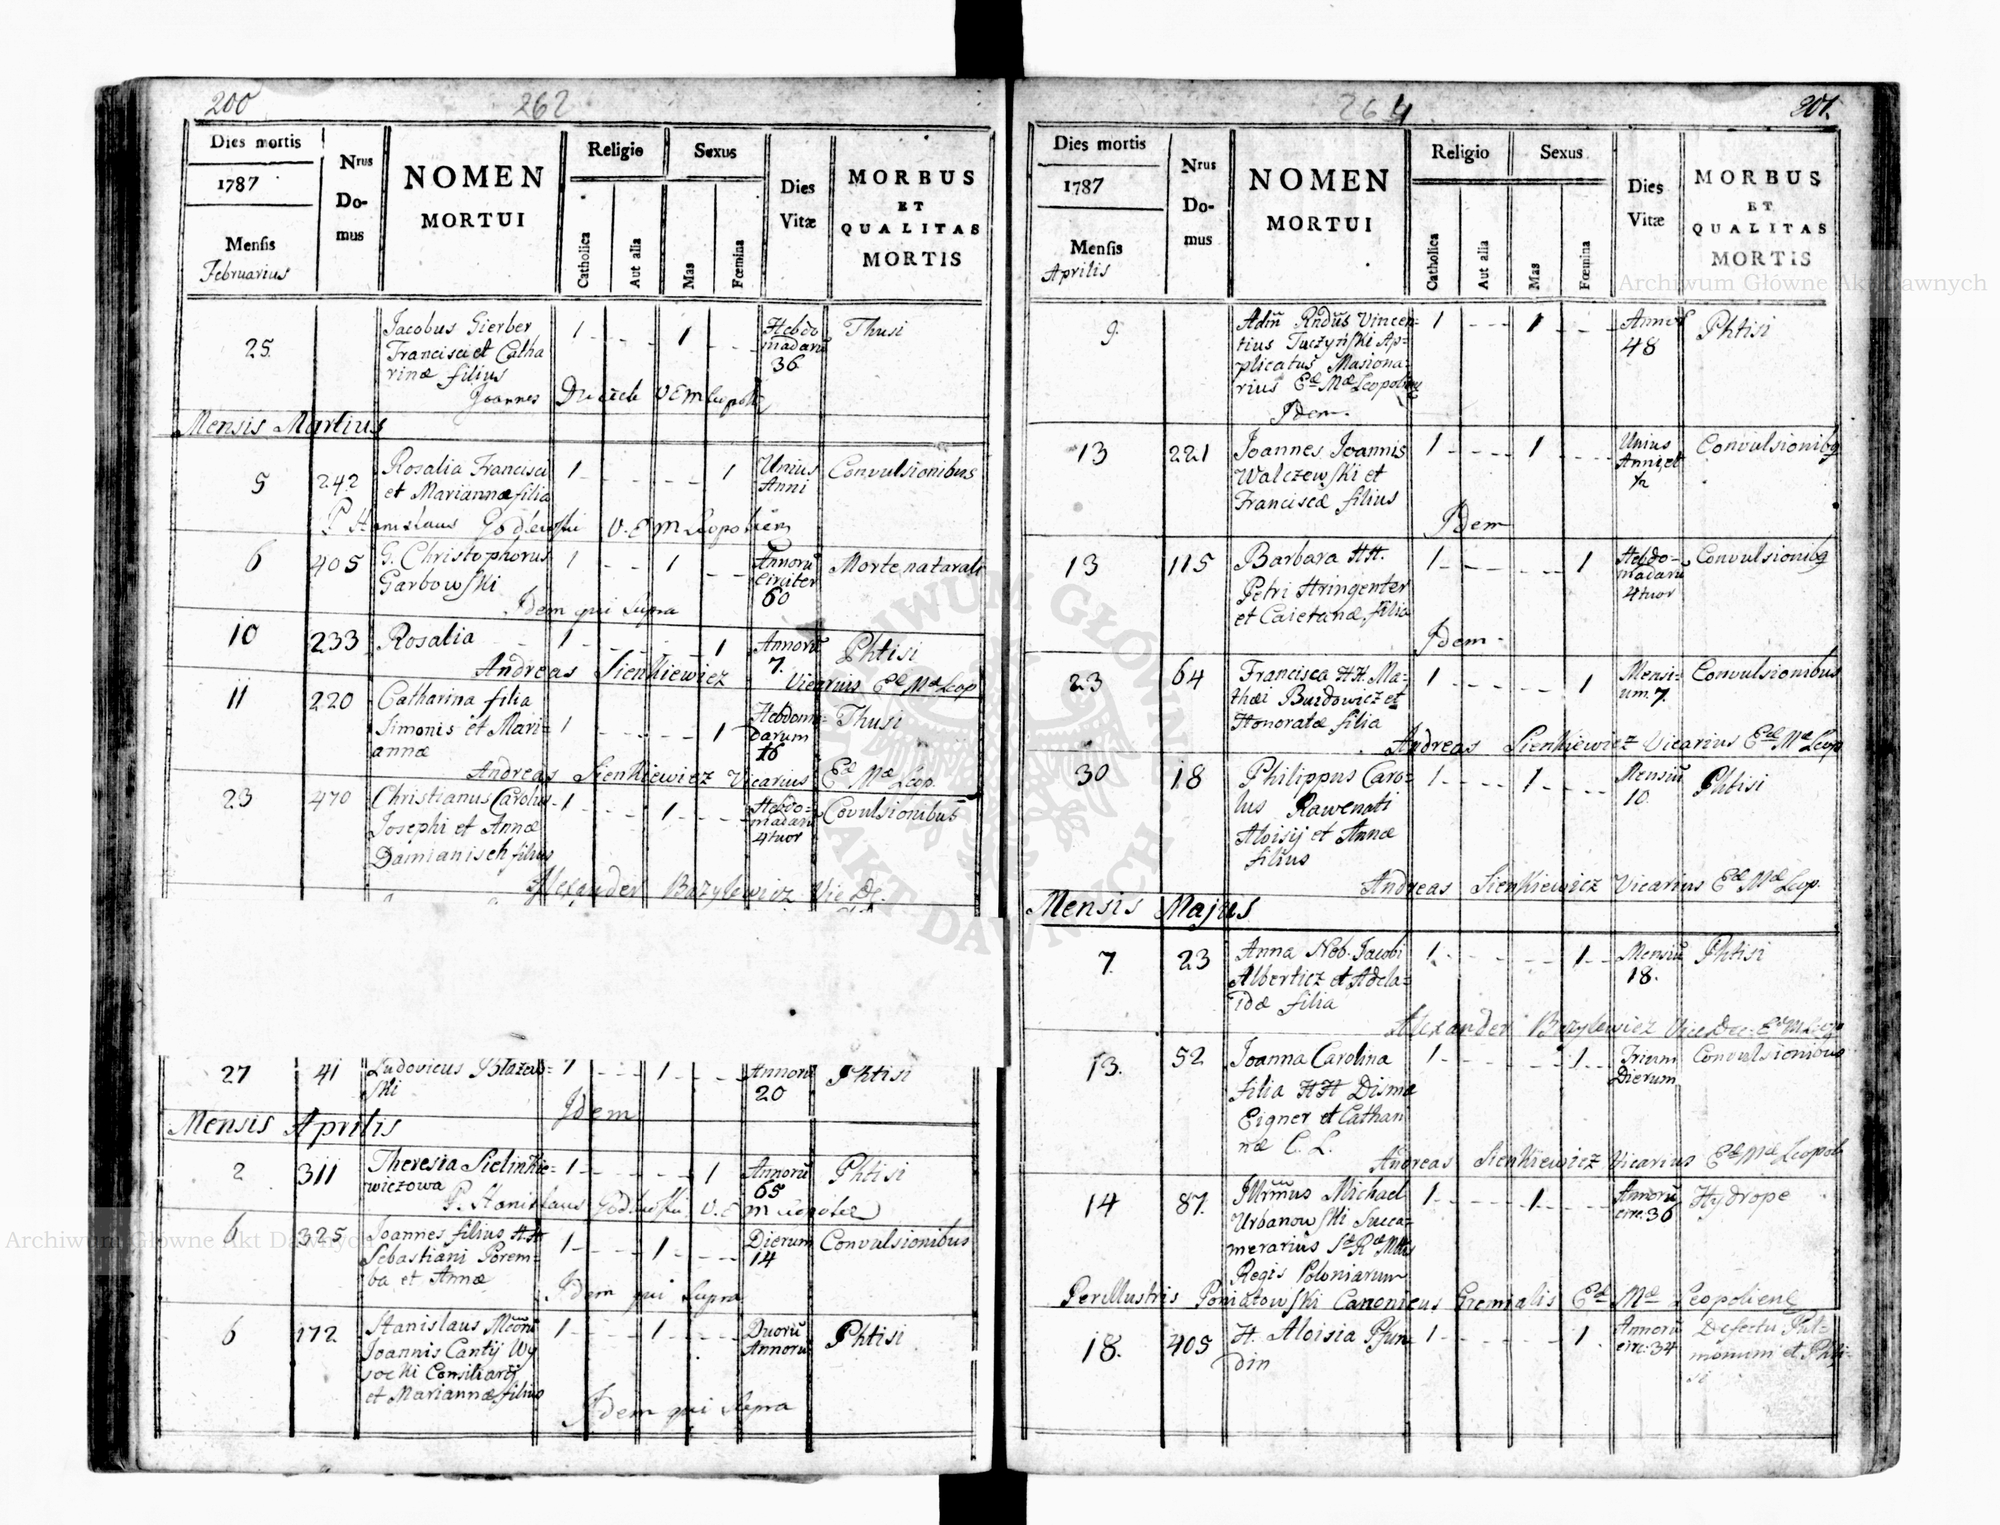 200
262
Dies mortis
1787
Mensis
Februarius
Nrus
Do-
mus
NOMEN
MORTUI
Religio
Catholica
Aut alia
Sexus
Mas
Fœmina
Dies
Vitæ
MORBUS
ET
QUALITAS
MORTIS
25.
Jacobus Gierber
Francisci et Catha
rinæ filius
1 - - - 1 - - -
Hebdo
madarū
36
Thusi
Joannes
Mensis Martius
5
242
Rosalia Francisci
et Mariannæ filia
1 - - - - - 1
Unius
Anni
Convulsionibus
P. Stanislaus Godlewski V. E M Leopolien
6
405
G. Christophorus
Garbowski
1 - - - 1 - - -
Annorū
circiter
60
Morte naturali
Idem qui supra
10
233
Rosalia
1 - - - - - 1
Annorū
7.
Phtisi
Andreas Sienkiewicz Vicarius Eæ Mæ Leop
11
220
Catharina filia
Simonis et Mari-
annæ
1 - - - - - 1
Hebdoma-
darum
16
Thusi
Andreas Sienkiewicz Vicarius Eæ Mæ Leop.
23
470
Christianus Carolus
Josephi et Annæ
Damianisch filius
1 - - - 1 - - -
Hebdo-
madarū
4tuor
Covulsionibus
Alexander Bazylewicz Vic De.
27
41
Ludovicus Blazew-
ski
1 - - - 1 - - -
Annorū
20
Phtisi
Idem
Mensis Aprilis
2
311
Theresia Sielinkie-
wiczowa
1 - - - - - 1
Annorū
65
Phtisi
P. Stanislaus Godlewski V. E
6
325
Joannes filius HH
Sebastiani Porem-
ba et Annæ
1 - - - 1 - - -
Dierum
14
Convulsionibus
Idem qui supra
6
172
Stanislaus
Joannis Cantij Wy
socki Consiliarij
et Mariannæ filius
1 - - - 1 - - -
Duorū
Annorū
Phtisi
Idem qui supra
264
201.
Dies mortis
1787
Mensis
Aprilis
Nrus
Do-
mus
NOMEN
MORTUI
Religio
Catholica
Aut alia
Sexus
Mas
Fœmina
Dies
Vitæ
MORBUS
ET
QUALITAS
MORTIS
9.
Adm Rndus Vincen-
tius Tuczyński Ap-
plicatus Masiona-
rius Eæ Mæ Leopolien
1 - - - 1 - - -
48
Phtisi
Idem.
13
221
Joannes Joannis
Walczewski et
Franciscæ filius
1 - - - 1 - - -
Unius
Anni et
½
Convulsionibq
Idem
13
115
Barbara HH.
Petri Stringenter
et Caietanæ filia
1 - - - - - 1
Hebdo-
madarū
4tuor
Convulsionibq
Idem.
23
64
Francisca HH. Ma-
thæi Burdowicz et
Honoratæ filia
1 - - - - - 1
Mensi-
um 7.
Convulsionibus
Andreas Sienkiewicz Vicarius Eæ Mæ Leop
30
18
Philippus Caro-
lus Rawenati
Aloisij et Annæ
filius
1 - - - 1 - - -
Mensiū
10.
Phtisi
Andreas Sienkiewicz Vicarius Eæ Mæ Leop.
Mensis Majus
7.
23
Anna Nob. Jacobi
Alberticz et Adela-
idæ filia
1 - - - - - 1
Mensiū
18.
Phtisi
Alexander Bazylewicz Vice Dec. Eæ M Leop
13.
52
Joanna Carolina
filia HH Disma
Eigner et Cathari
næ C. L.
1 - - - - - 1
Trium
Dierum
Convulsionibus
Andreas Sienkiewicz Vicarius Eæ Mæ Leopol
14
87.
Illrmus Michael
Urbanowski Succa-
merarius Sæ Ræ Mttis
Regis Poloniarum
1 - - - 1 - - -
Annorū
circ. 36
Hydrope
Perillustris Poniatowski Canonicus Gremialis Eæ Mæ Leopolien
18.
405
H. Aloisia Pfun
din
1 - - - - - 1
Annorū
circ: 34
Defectu Pul-
monum et Phti-
si
Archiwum Główne Akt Dawnych
Archiwum Główne Akt Dawnych
ARCHIWUM GŁÓWNE AKT DAWNYCH